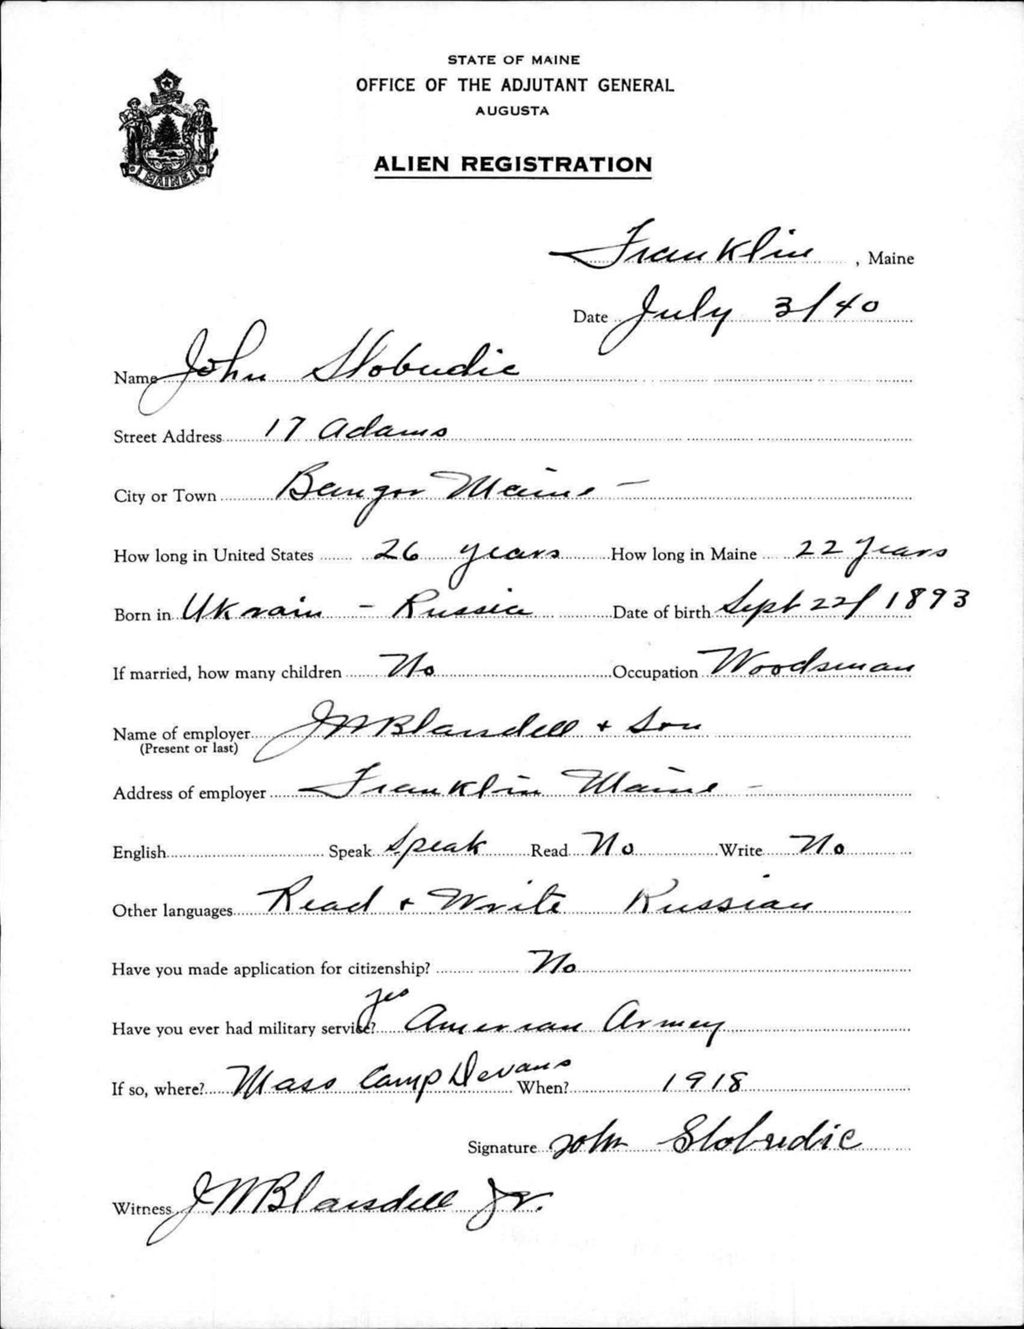 STATE OF MAINE
OFFICE OF THE ADJUTANT GENERAL
AUGUSTA
ALIEN REGISTRATION
MAINE
Franklin, Maine
Date July 3/40
Name John Slobudic
Street Address 17 Adams
City or Town Bangor Maine -
How long in United States 26 years How long in Maine 22 years
Born in Ukrain - Russia Date of birth Sept 22/1893
If married, how many children No Occupation Woodsman
Name of employer JWBlaisdell + Son
(Present or last)
Address of employer Franklin Maine -
English Speak Speak Read No Write No
Other languages Read + Write Russian
Have you made application for citizenship? No
Have you ever had military service? yes American Armey
If so, where? Mass Camp Devans When? 1918
Signature John Slobudic
Witness JWBlaisdell Jr.